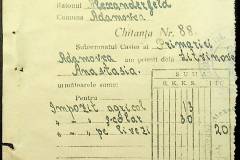 Raionul Alexanderfeld
Comuna Adamovca
Chitanța Nr. 88
Subsemnatul Casier al Primăriei
Adamovca am primit dela
Anastasia.
următoarele sume:
SUMA
Pentru
Impozit agricol 13
" " școlar 50
" " pe livezi 20